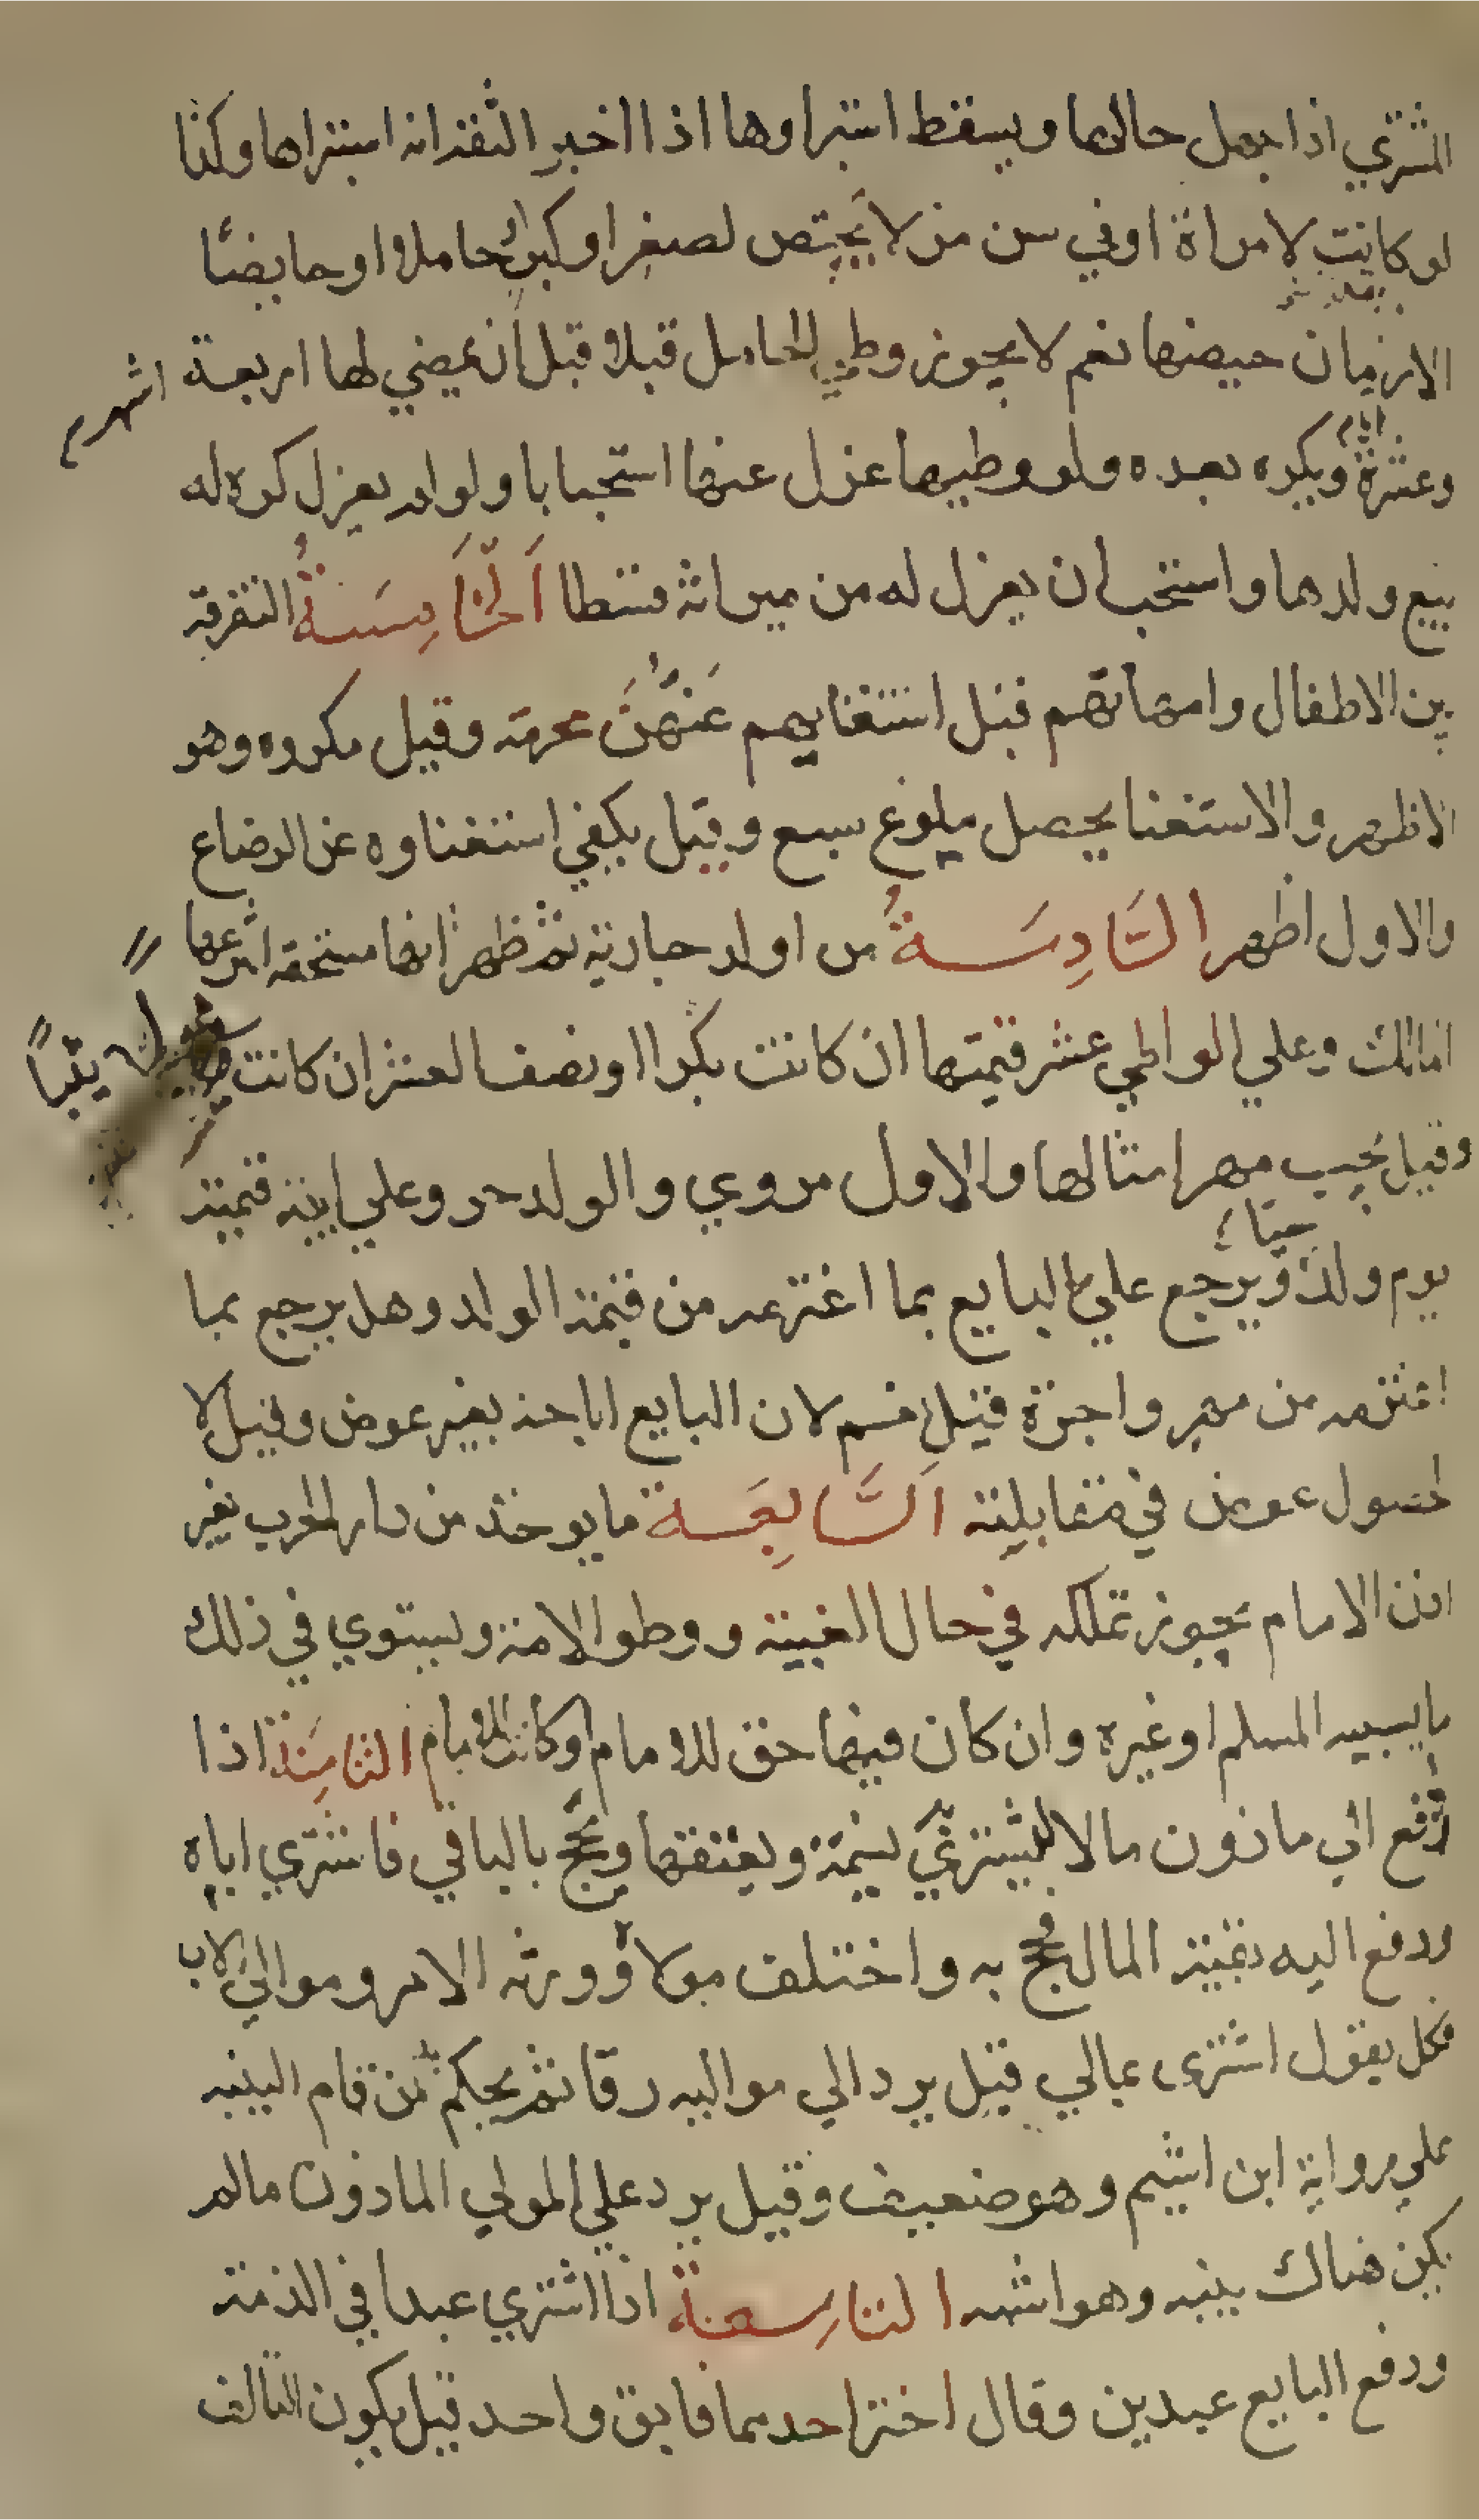 المشتري اذا جهل حالها ويسقط استبراوها اذا اخبر الثقة انه استبراها وكذا
لو كانت لامراة او في سن من لا يحيض لصغر او كبر او حاملا او حايضا
الا زمان حيضها نعم لا يجوز وطي الحامل قبلا قبل ان يمضي لها اربعة اشهر
وعشرة ايام ويكره بعده ولو وطيها عزل عنها استحبابا ولو لم يعزل كره له
بيع ولدها واستحب ان يعزل له من ميراثه قسطا اَلْخَامِسَةُ التفرقة
بين الاطفال وامهاتهم قبل استغنايهم عَنْهُنَّ محرمة وقيل مكروه وهو
الاظهر والاستغنا يحصل ببلوغ سبع وقيل يكفي استغناوه عن الرضاع
والاول اظهر السَّادِسَةُ من اولد جارية ثم ظهر انها مستحقة انتزعها
المالك وعلي الواطي عشر قيمتها ان كانت بكرا او نصف العشر ان كانت ثيباً
وقيل يجب مهر امثالها والاول مروي والولد حر وعلي ابيه قيمته
يوم ولد حيا ويرجع علي البايع بما اغترمه من قيمة الولد وهل يرجع بما
اغترمه من مهر واجرة قيل نعم لان البايع اباحه بغير عوض وقيل لا
لحصول عوض في مقابلته اَلسَّابِعَة ما يوخذ من دار الحرب بغير
اذن الامام يجوز تملكه في حال الغيبة ووطو الامة ويستوي في ذلك
ما يسبيه المسلم او غيره وان كان فيها حق للامام او كانت للامام الثامِنَة اذا
دفع الي ماذون مالا ليشتري نسمة ويعتقها ويحج بالباقي فاشتري اباه
ودفع اليه بقية المال فحج به واختلف مولاه وورثة الامر وموالي الاب
فكل يقول اشتري بمالي قيل يرد الي مواليه رقا ثم يحكم لمن قام البينه
علي رواية ابن اشيم وهو ضعيف وقيل يرد علي المولي الماذون مالم
يكن هناك بينه وهو اشبه التاسِعة اذا اشتري عبدا في الذمة
ودفع البايع عبدين وقال اختر احدهما فابق واحد قيل يكون التالف